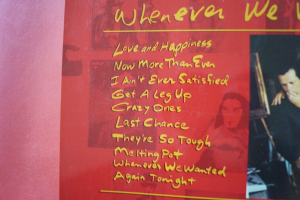 Whenever We W
Love and Happiness
Now More Than Ever
I Ain't Ever Satisfied
Get A Leg Up
Crazy Ones
Last Chance
They're So Tough
Melting Pot
Whenever We Wanted
Again Tonight